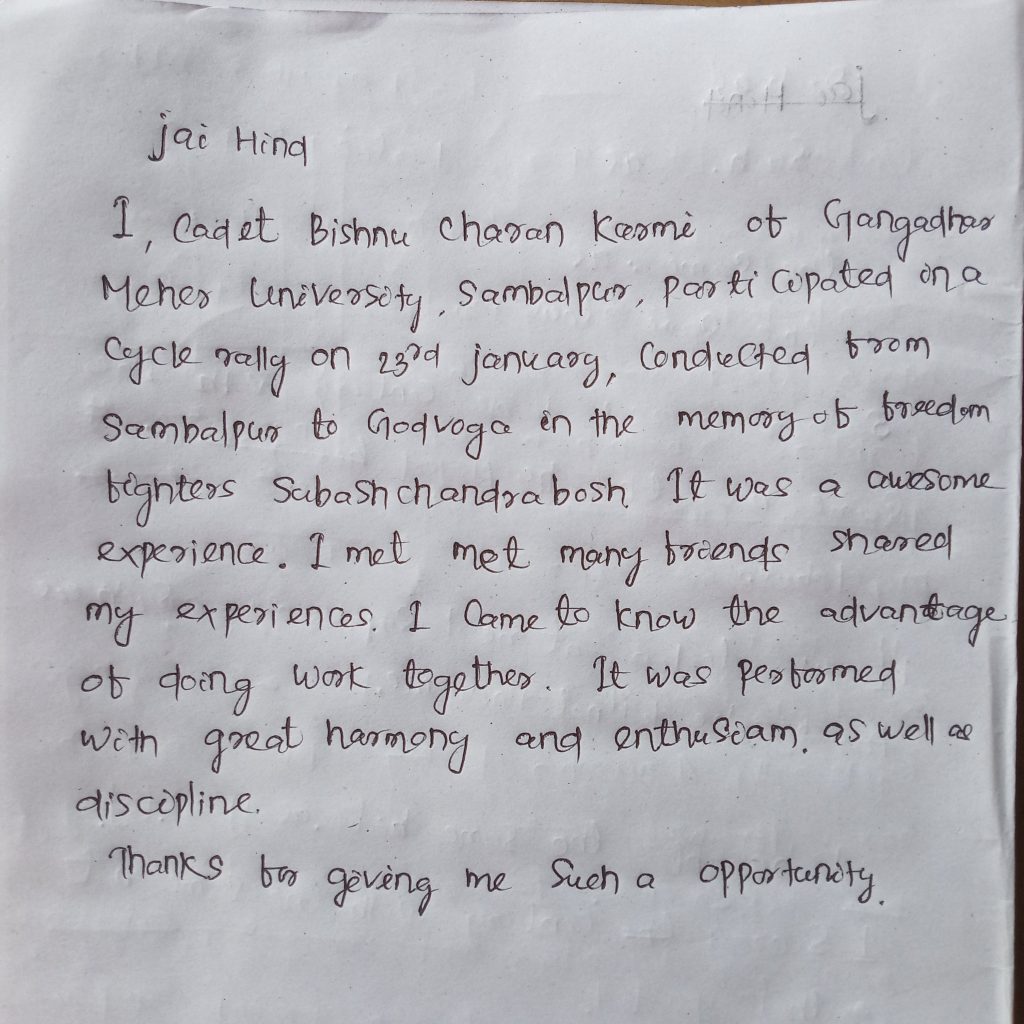 jai Hind
I, Cadet Bishnu Charan Karmi of Gangadhar
Meher University, Sambalpur, participated in a
Cycle rally on 23rd january, Conducted from
Sambalpur to Godvoga in the memory of freedom
fighters Subash chandra bosh. It was a awesome
experience. I met met many friends shared
my experiences. I Came to know the advantage
of doing work together. It was performed
with great harmony and enthusiam, as well as
discipline.
Thanks for giving me Such a opportunity.